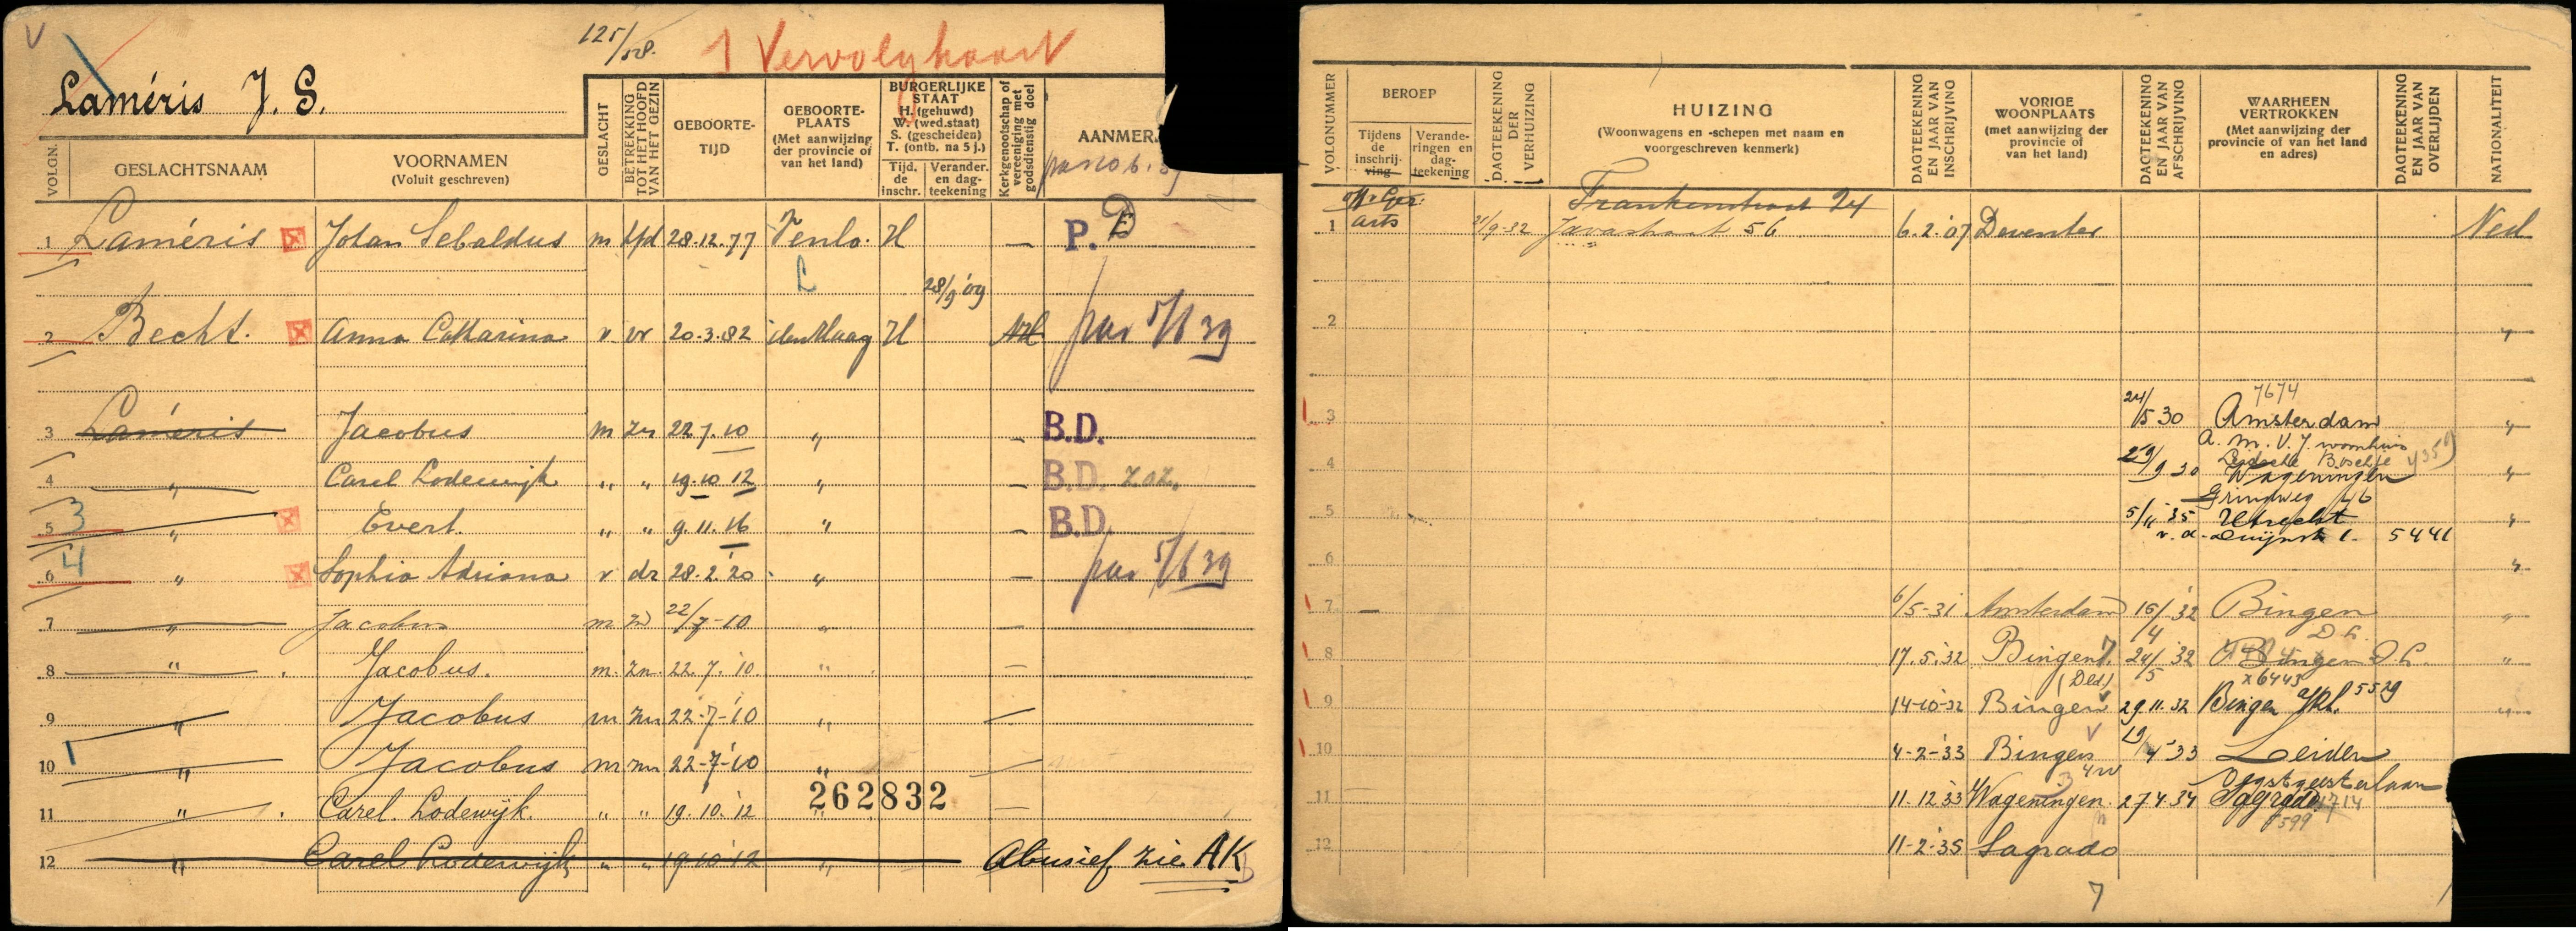 V
125/528.
1 Vervolgkaart
Laméris J. S.
VOLGN.
GESLACHTSNAAM
VOORNAMEN
(Voluit geschreven)
GESLACHT
BETREKKING TOT HET HOOFD VAN HET GEZIN
GEBOORTE-
TIJD
GEBOORTE-
PLAATS
(Met aanwijzing
der provincie of
van het land)
BURGERLIJKE
STAAT
H. (gehuwd)
W. (wed.staat)
S. (gescheiden)
T. (ontb. na 5 j.)
Tijd.
de
inschr.
Verander.
en dag-
teekening
Kerkgenootschap of vereeniging met godsdienstig doel
AANMER
1 Laméris Johan Sebaldus m hfd 28.12.77 Venlo. H — P. E
28/9 '09
2 Becht. Anna Catharina v vr 20.3.82 den Haag H NH par 5/6 39
3 Laméris Jacobus m zn 22.7.10 „ — B.D.
4 „ Carel Lodewijk „ „ 19.10 12 „ — B.D.
3
5 „ Evert. „ „ 9.11.16 „ — B.D.
4
6 „ Sophia Adriana v dr 28.2.'20 „ — par 5/6 39
7 „ Jacobus m zn 22/7-10 „ —
8 „ Jacobus. m. zn. 22.7.'10. „ —
9 „ Jacobus m zn 22-7-'10 „ —
10 „ Jacobus m zn 22-7-'10 „ —
262832
11 „ Carel. Lodewijk. „ „ 19.10.'12 „ —
12 „ Carel Lodewijk „ „ 19.10.12 „ Abusief zie AK
VOLGNUMMER
BEROEP
Tijdens
de
inschrij-
ving
Verande-
ringen en
dag-
teekening
DAGTEEKENING DER VERHUIZING
HUIZING
(Woonwagens en -schepen met naam en
voorgeschreven kenmerk)
DAGTEEKENING EN JAAR VAN INSCHRIJVING
VORIGE
WOONPLAATS
(met aanwijzing der
provincie of
van het land)
DAGTEEKENING EN JAAR VAN AFSCHRIJVING
WAARHEEN
VERTROKKEN
(Met aanwijzing der
provincie of van het land
en adres)
DAGTEEKENING EN JAAR VAN OVERLIJDEN
NATIONALITEIT
Frankenstraat 24
1 arts 21/9-32 Javastraat 56 6.2.'07 Deventer Ned
2 „
7674
3 24/5 30 Amsterdam „
A. M. V. J. woonhuis
4 29/9 30 Wageningen „
Grindweg 46
5 5/11 '35 Utrecht „
5441
6 „
7 — 6/5-31 Amsterdam 15/4 '32 Bingen „
D L.
8 17.5.'32 Bingen 24/5 '32 Bingen D. L. „
(Dld) x6443
9 14-10-32 Bingen 29.11.32 Bingen 5529 „
10 4-2-'33 Bingen 19/4 33 Leiden
Oegstgeesterlaan
11 11-12'33 Wageningen. 27 4.34 Sagrado
599
12 11-2-'35 Sagrado
7